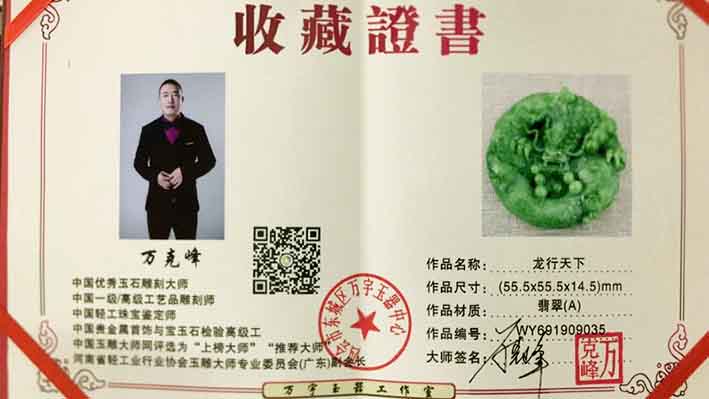 收藏證書
万克峰
中国优秀玉石雕刻大师
中国一级/高级工艺品雕刻师
中国轻工珠宝鉴定师
中国贵金属首饰与宝玉石检验高级工
中国玉雕大师网评选为“上榜大师”“推荐大师”
河南省轻工业行业协会玉雕大师专业委员会(广东)副会长
作品名称: 龙行天下
作品尺寸: (55.5x55.5x14.5)mm
作品材质: 翡翠(A)
作品编号: WY691909035
大师签名:
万克峰
东城区万宇玉器中心
万宇玉器工作室